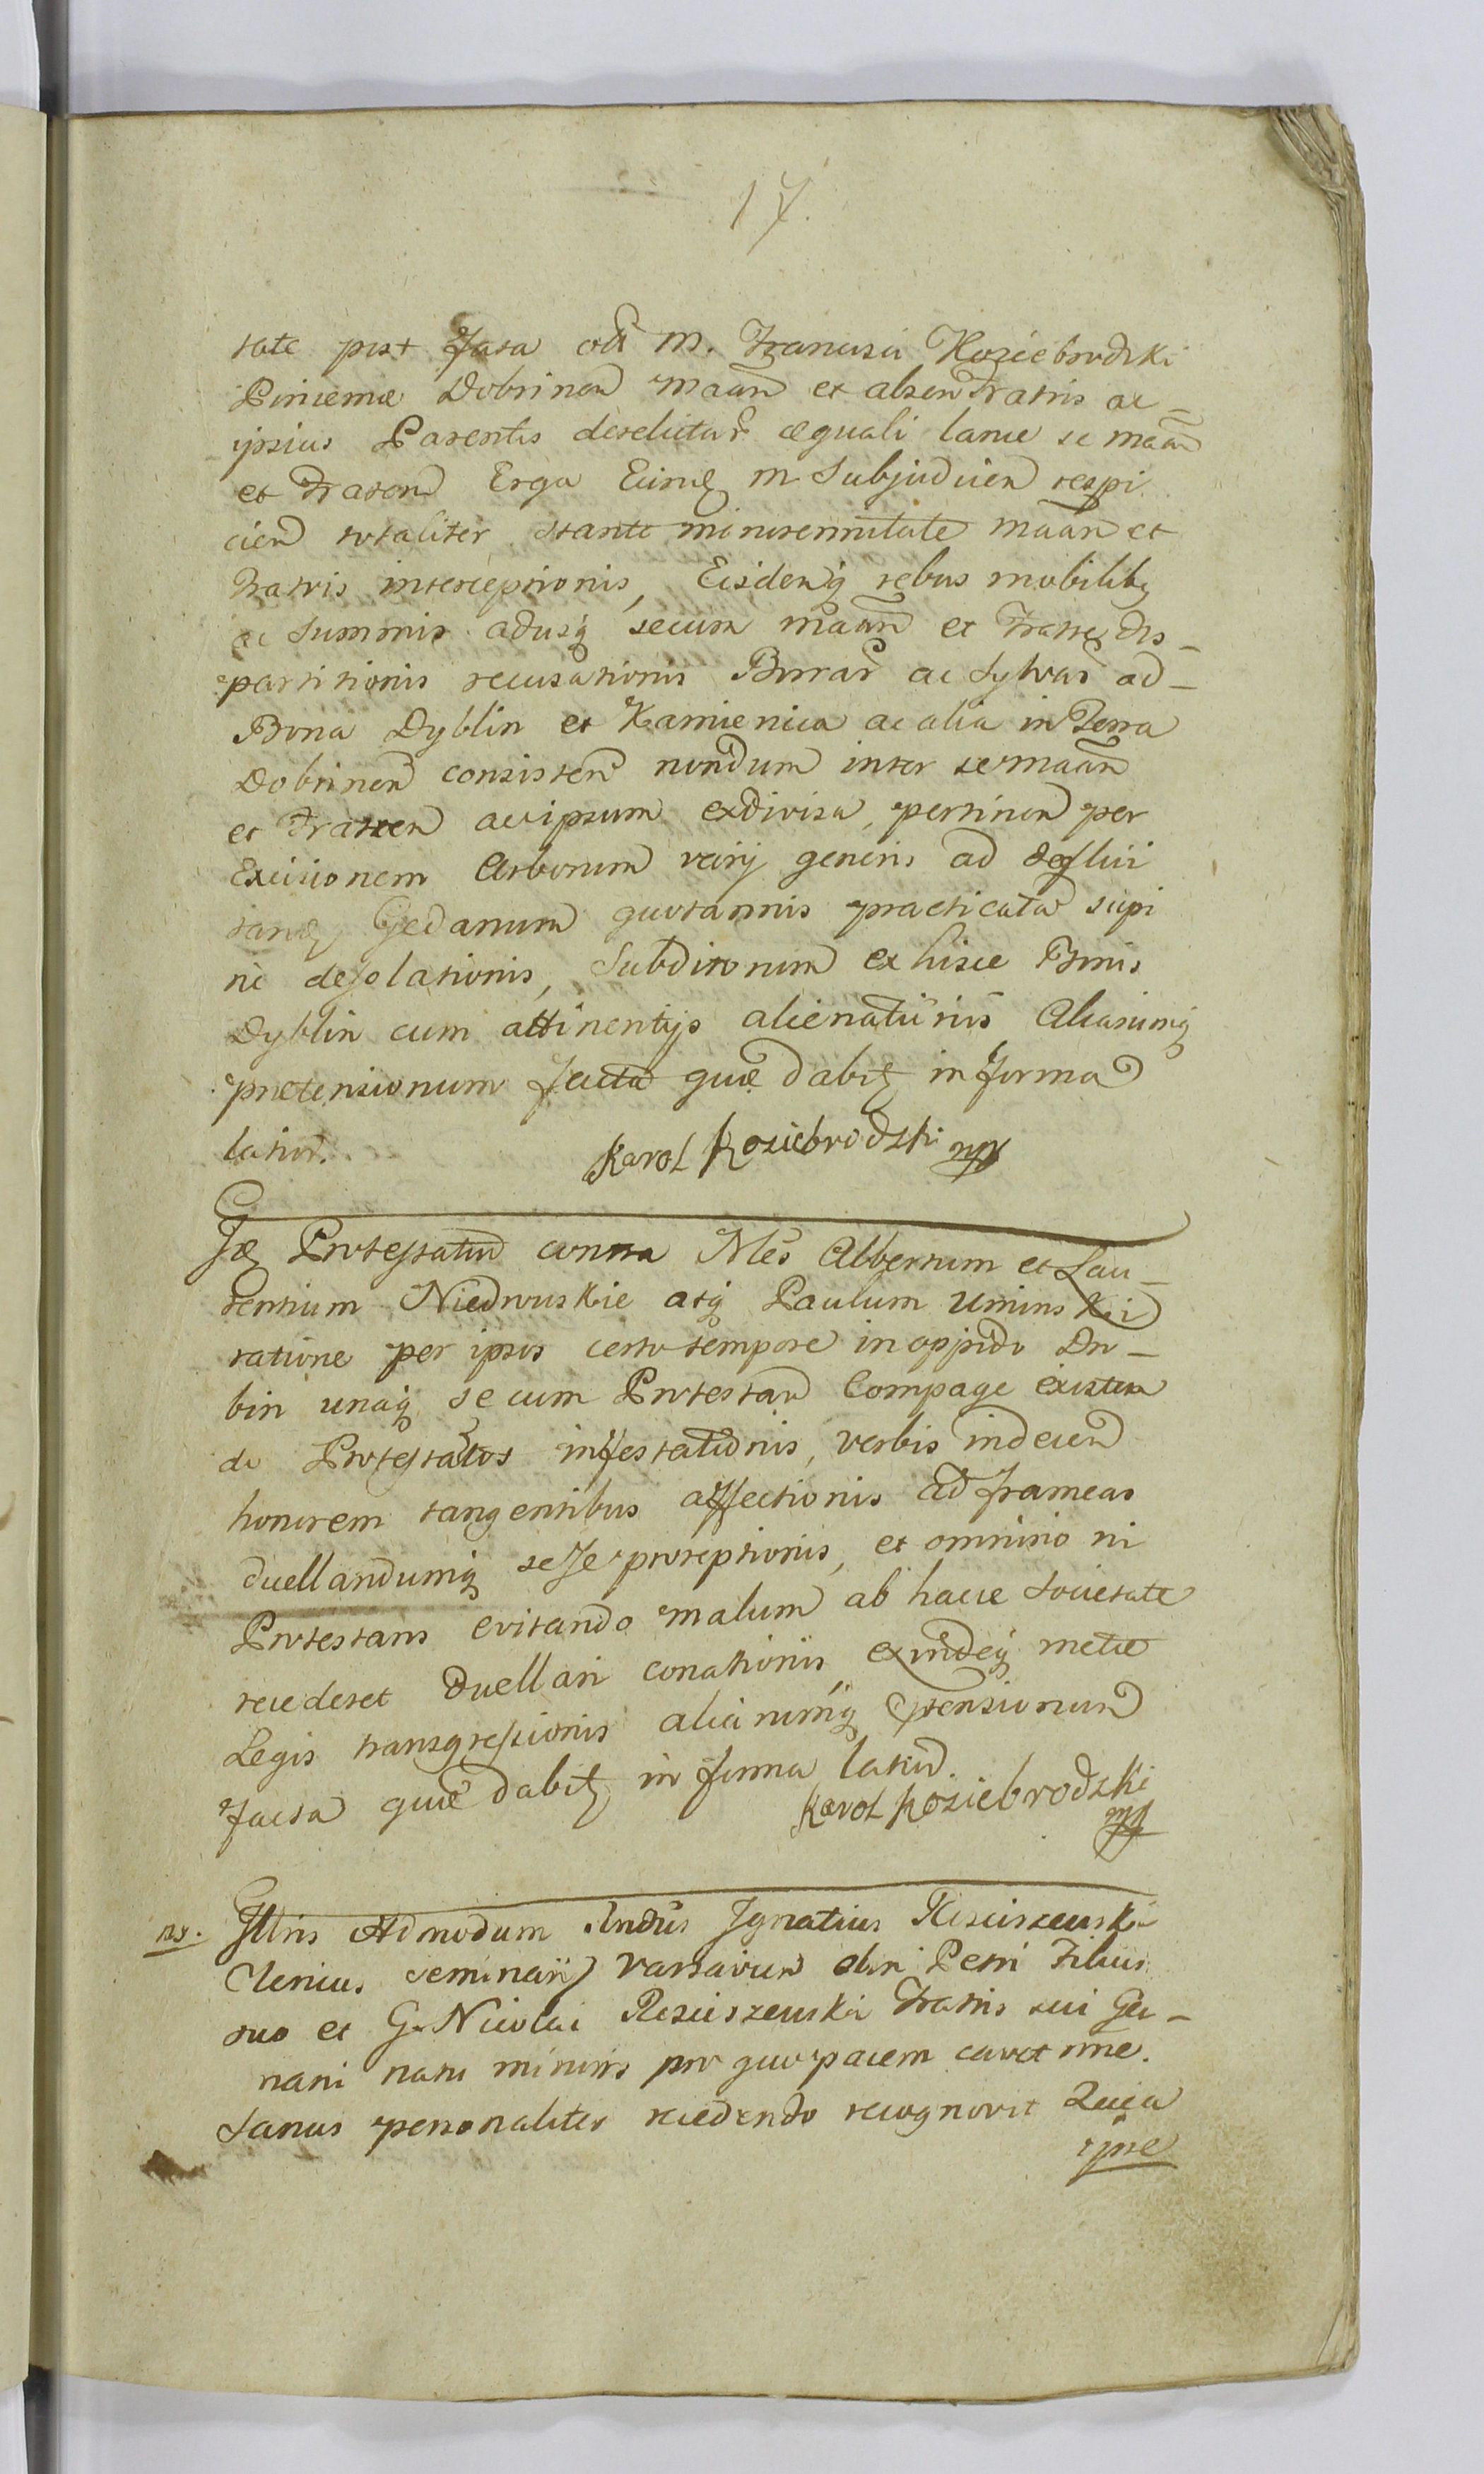 17.
tate post Fata olì M. Francisci Koziebrodzki
Pincernæ Dobrinen Maan et absen Fratris ac
ipsius Parentis derelictar æquali lance se maan
et Fratem Erga Eund M Subjudicen respi
cien totaliter stante minorennitate maan et
Fratris interceptionis, Eisdemq rebus mobilibq
ac Summis adusq secum maan et Fratre dis-
partitionis recusationis Borrar ac Sylvar ad-
Bona Dyblin et Kamienica ac alia in Terra
Dobrinen consisten nondum inter se maan
et Fratrem ac ipsum exdivisa, pertinen per
Excisionem Arborum varij generis ad defluit
tand Gedanum quotannis practicatæ silvi
nè desolationis, Subditorum ex hisce Bonis
Dyblin cum attinentijs alienationis Aliarumq
prætensionum facta quæ dabitq in forma
latior.
Karol Koziebrodzki mp
Idq Protestatur contra Nles Albertum et Lau-
rentium Niedrouskie atq Paulum Uminski
ratione per ipsos certo tempore in oppido Do-
bin unaq secum Protestan Compage existen
do Protestatos infestationis, verbis indecen
honorem tangentibus affectionis ad frameas
duellandumq sese proreptionis, et omnino ni
Protestans evitando malum ab hacce Societate
recederet duellari conationis exindeq metæ
Legis transgressionis aliarumq ptensionum
facta quæ dabitq in forma latior.
Karol Koziebrodzki
mp
Illris Admodum Rndus Ignatius Rosciszewski
Clericus Seminarij Varsavien olim Petri Filius
suo et G. Nicolai Rosciszewski Fratris sui Ger-
mani natu minoris pro quo pacem cavet nne.
Sanus personaliter recedendo recognovit Quia
ipse